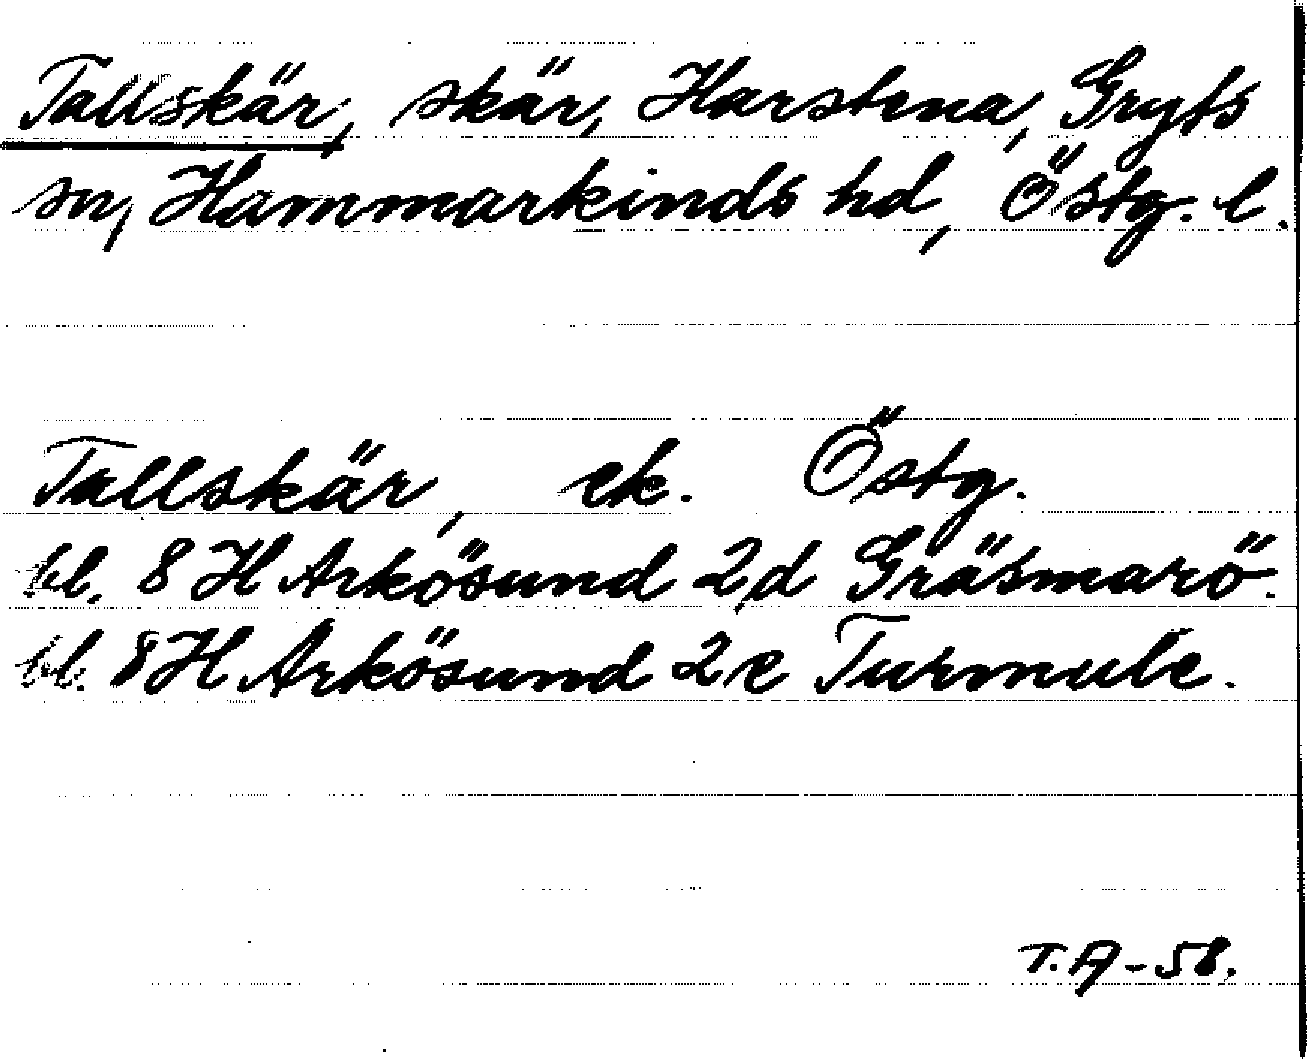 Tallskär, skär, Harstena, Gryts
sn, Hammarkinds hd, Östg. l.
Tallskär, ek. Östg.
bl. 8 H Arkösund 2d Gräsmarö.
bl. 8 H Arkösund 2e Turmule.
T.A-58.